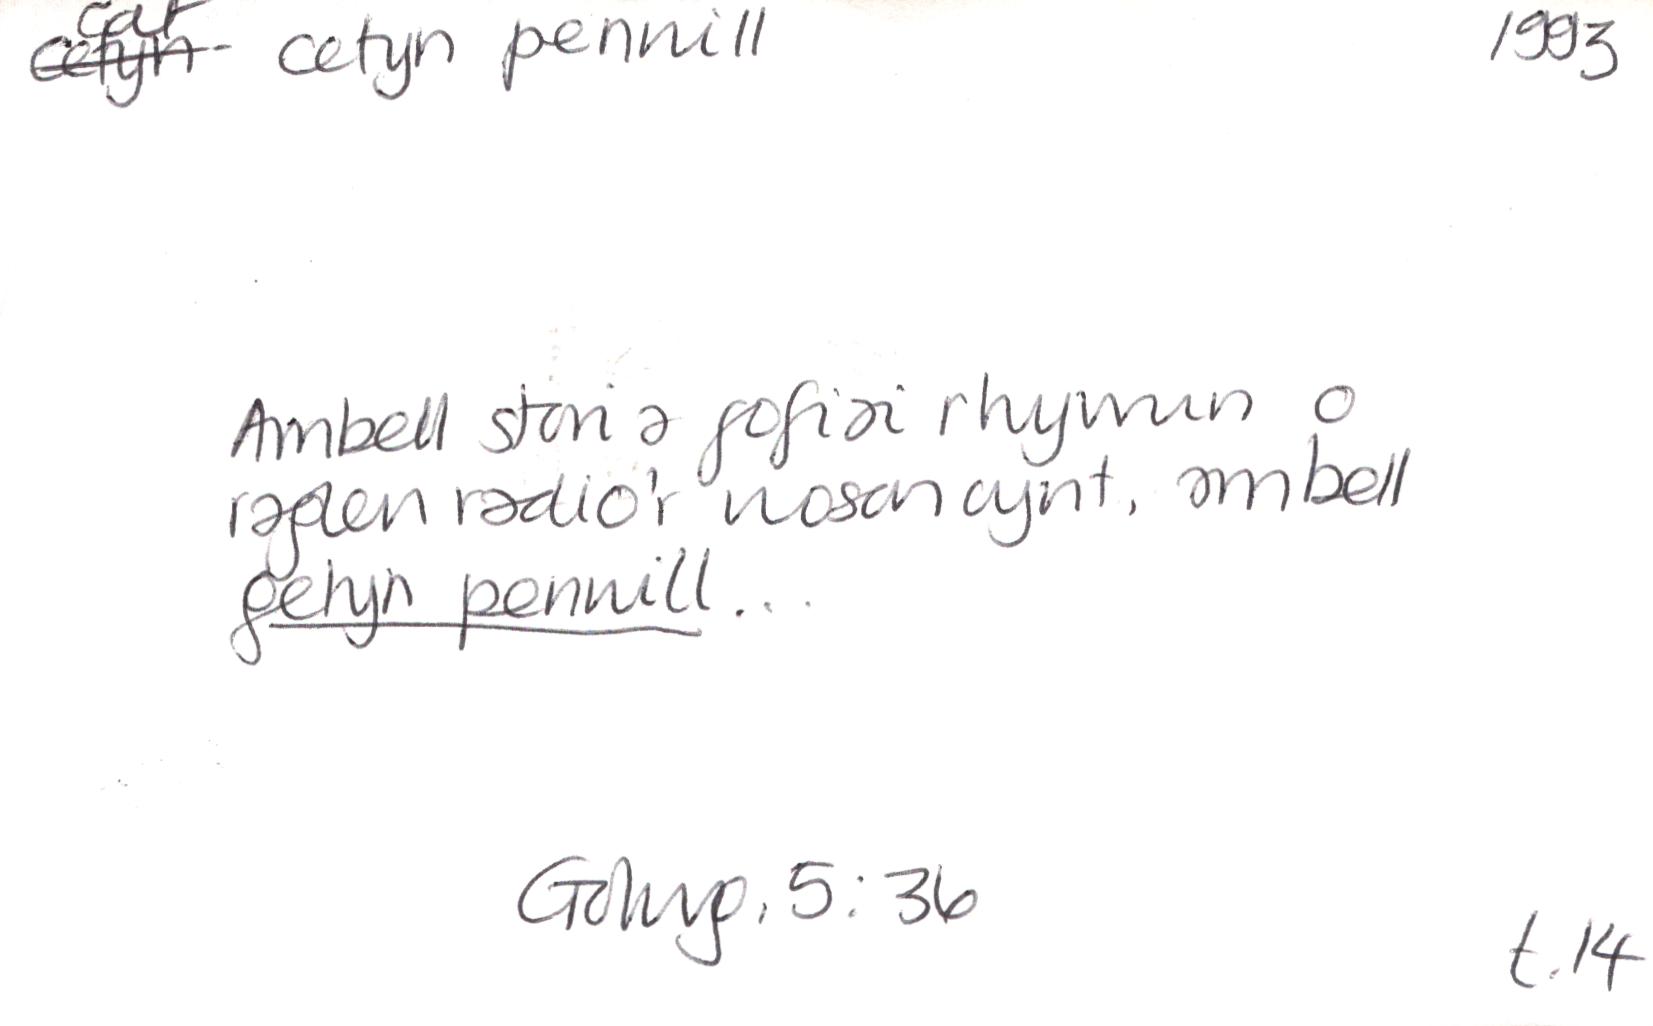 cat
cetyn cetyn pennill 1993
Ambell stori a gofiai rhywun o
raglen radio'r noson cynt, ambell
getyn pennill...
Golwg, 5:36
t.14